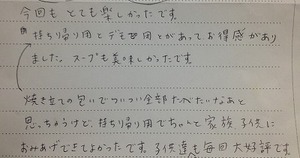 今回も とても楽しかったです
持ち帰り用とデモ用とがあってお得感があり
ました。スープも美味しかったです
焼き立ての匂いでついつい全部たべたいなあと
思っちゃうけど、持ち帰り用でちゃんと家族、子供に
おみあげできてよかったです。子供達も毎回大好評です